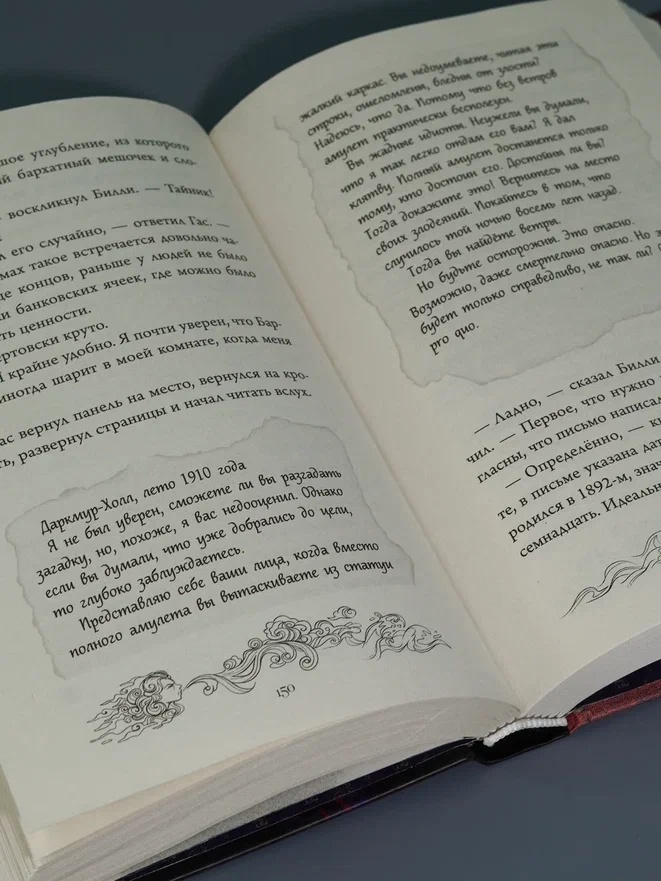 шое углубление, из которого
ий бархатный мешочек и сло-
воскликнул Билли. — Тайник!
л его случайно, — ответил Гас. —
мах такое встречается довольно ча-
це концов, раньше у людей не было
и банковских ячеек, где можно было
ть ценности.
ертовски круто.
И крайне удобно. Я почти уверен, что Бар-
иногда шарит в моей комнате, когда меня
ас вернул панель на место, вернулся на кро-
ть, развернул страницы и начал читать вслух.
Даркмур-Холл, лето 1910 года
Я не был уверен, сможете ли вы разгадать
загадку, но, похоже, я вас недооценил. Однако
если вы думали, что уже добрались до цели,
то глубоко заблуждаетесь.
Представляю себе ваши лица, когда вместо
полного амулета вы вытаскиваете из статуи
150
жалкий каркас. Вы недоумеваете, читая эти
строки, ошеломлены, бледны от злости?
Надеюсь, что да. Потому что без ветров
амулет практически бесполезен.
Вы жадные идиоты. Неужели вы думали,
что я так легко отдам его вам? Я дал
клятву. Полный амулет достанется только
тому, кто достоин его. Достойны ли вы?
Тогда докажите это! Вернитесь на место
своих злодеяний. Покайтесь в том, что
случилось той ночью восемь лет назад.
Тогда вы найдёте ветры.
Но будьте осторожны. Это опасно.
Возможно, даже смертельно опасно. Но
будет только справедливо, не так ли?
pro quo.
— Ладно, — сказал Билли
чил. — Первое, что нужно
гласны, что письмо написал
— Определённо, —
те, в письме указана дат
родился в 1892-м, знач
семнадцать. Идеальн